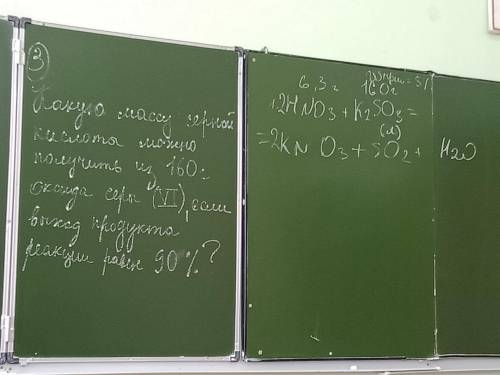 3
Какую массу серной
кислоты можно
получить из 160г
оксида серы (VI), если
выход продукта
реакции равен 90%?
6,3г 160г
+2HNO3 + K2SO3 =
(л)
=2KNO3 + SO2 + H2O